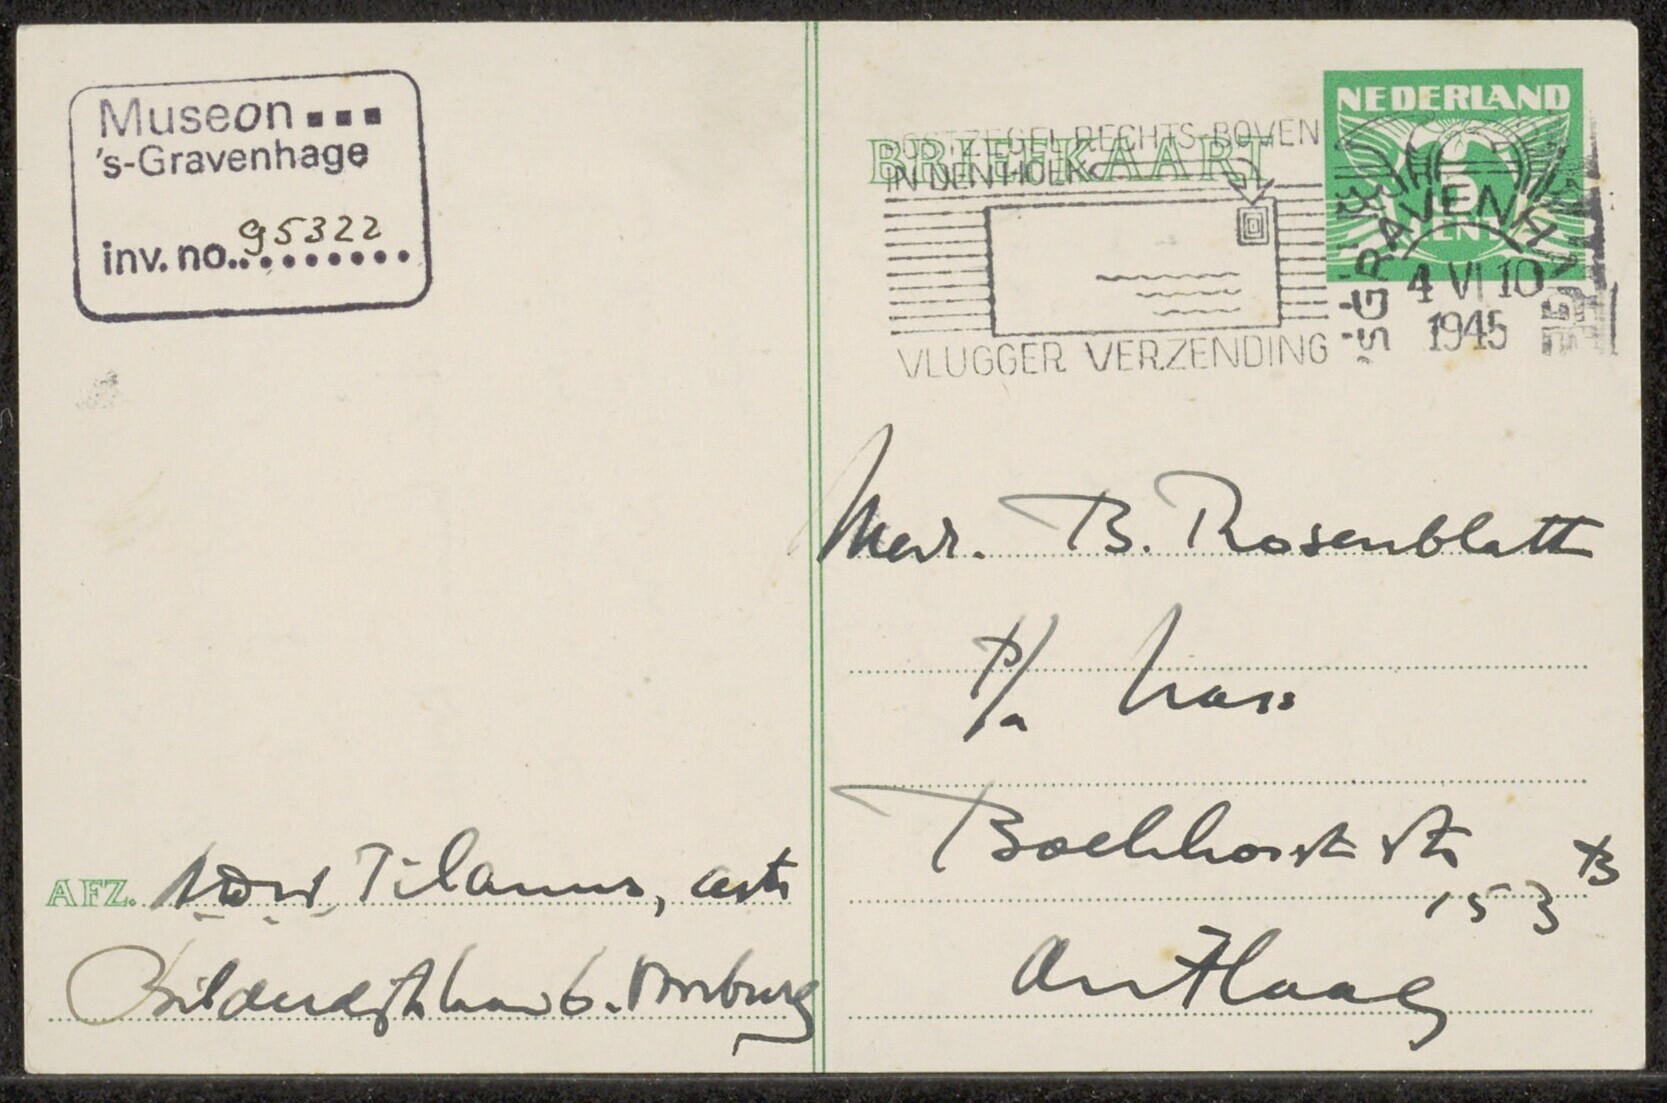 Museon
's-Gravenhage
inv. no. 95322
BRIEFKAART
POSTZEGEL RECHTS BOVEN
IN DEN HOEK
VLUGGER VERZENDING
NEDERLAND
5
CENT
'S-GRAVENHAGE
4 VI 10
1945
Mevr. B. Rosenblatt
p/a
Boekhorststr
153 B
den Haag
AFZ. Tilanus, arts
Bilderdijklaan 6. Voorburg